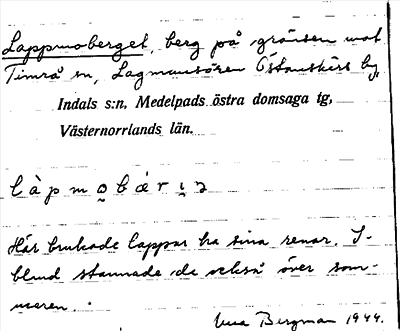 Lappmoberget, berg på gränsen mot
Timrå sn, Lagmansören Östanskärs by,
Indals s:n, Medelpads östra domsaga tg,
Västernorrlands län.
làpmo̠bár
Här brukade lappar ha sina renar. I-
bland stannade de också över som-
maren.
Bergman 1944.